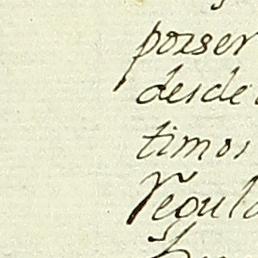 porser
desde
timos
Regula